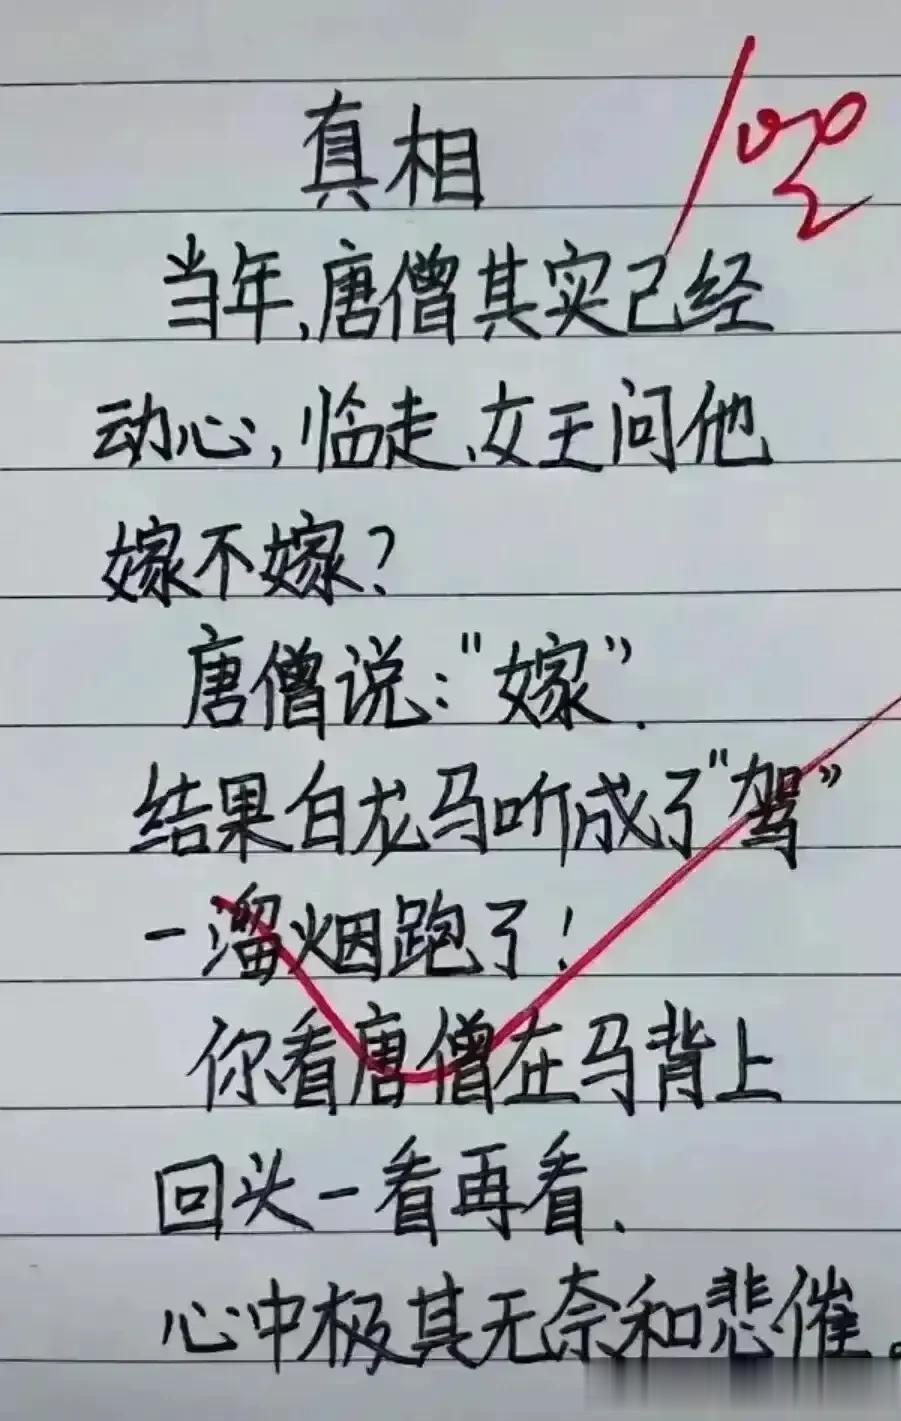 100
真相
当年,唐僧其实已经
动心,临走,女王问他
嫁不嫁?
唐僧说:"嫁".
结果白龙马听成了"驾"
一溜烟跑了!
你看唐僧在马背上
回头一看再看.
心中极其无奈和悲催。